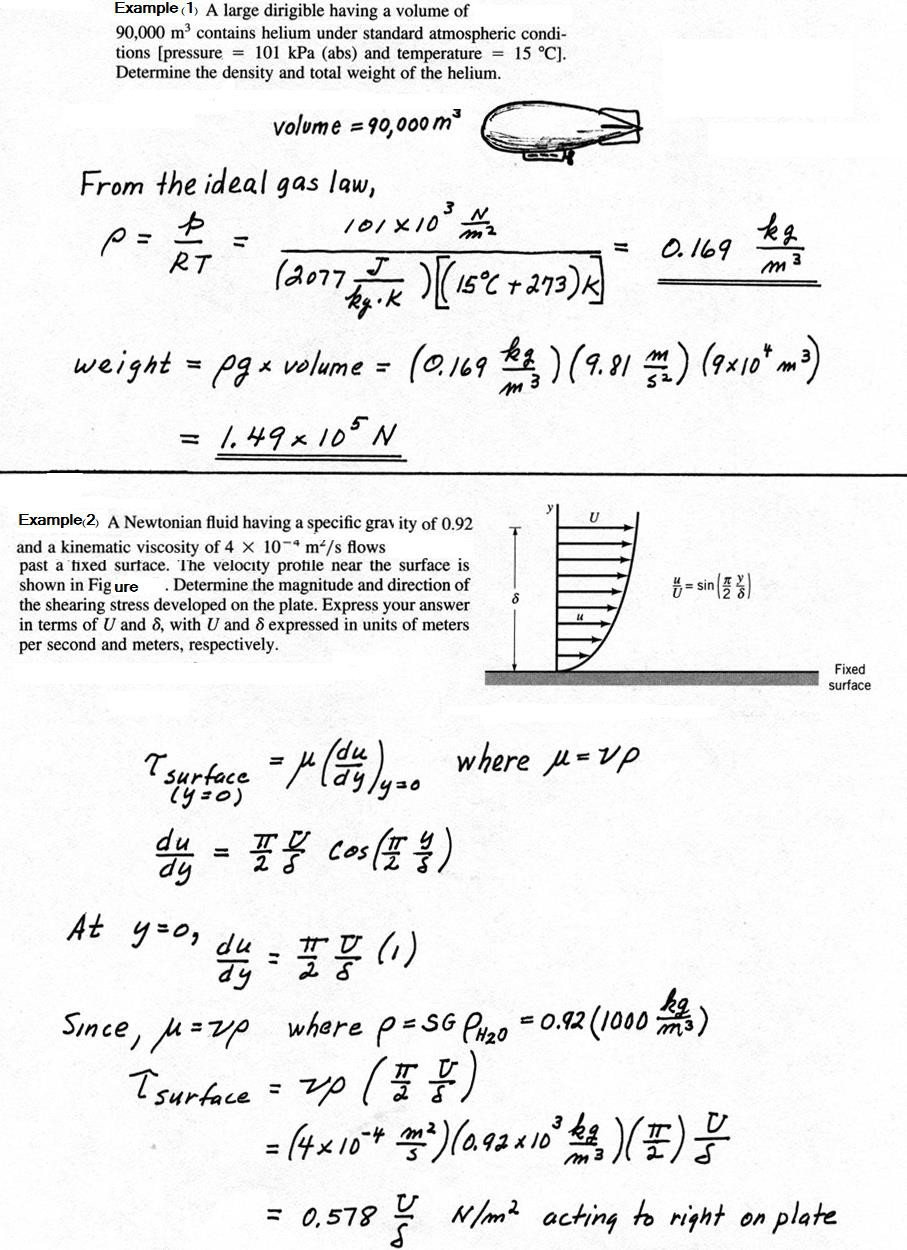 Example (1) A large dirigible having a volume of
90,000 m³ contains helium under standard atmospheric condi-
tions [pressure = 101 kPa (abs) and temperature = 15 °C].
Determine the density and total weight of the helium.
volume = 90,000 m³
From the ideal gas law,
ρ = p/RT = 101 × 10³ N/m² / (2077 J/kg·K)[(15°C + 273)K] = 0.169 kg/m³
weight = ρg × volume = (0.169 kg/m³)(9.81 m/s²)(9×10⁴ m³)
= 1.49 × 10⁵ N
Example(2) A Newtonian fluid having a specific grav ity of 0.92
and a kinematic viscosity of 4 × 10⁻⁴ m²/s flows
past a fixed surface. The velocity profile near the surface is
shown in Fig ure . Determine the magnitude and direction of
the shearing stress developed on the plate. Express your answer
in terms of U and δ, with U and δ expressed in units of meters
per second and meters, respectively.
y
U
δ
u
u/U = sin(π/2 y/δ)
Fixed
surface
τ surface (y=0) = μ (du/dy) y=0 where μ = νρ
du/dy = π/2 U/δ cos(π/2 y/δ)
At y=0, du/dy = π/2 U/δ (1)
Since, μ = νρ where ρ = SG ρH₂O = 0.92 (1000 kg/m³)
τ surface = νρ (π/2 U/δ)
= (4×10⁻⁴ m²/s)(0.92 × 10³ kg/m³)(π/2) U/δ
= 0.578 U/δ N/m² acting to right on plate